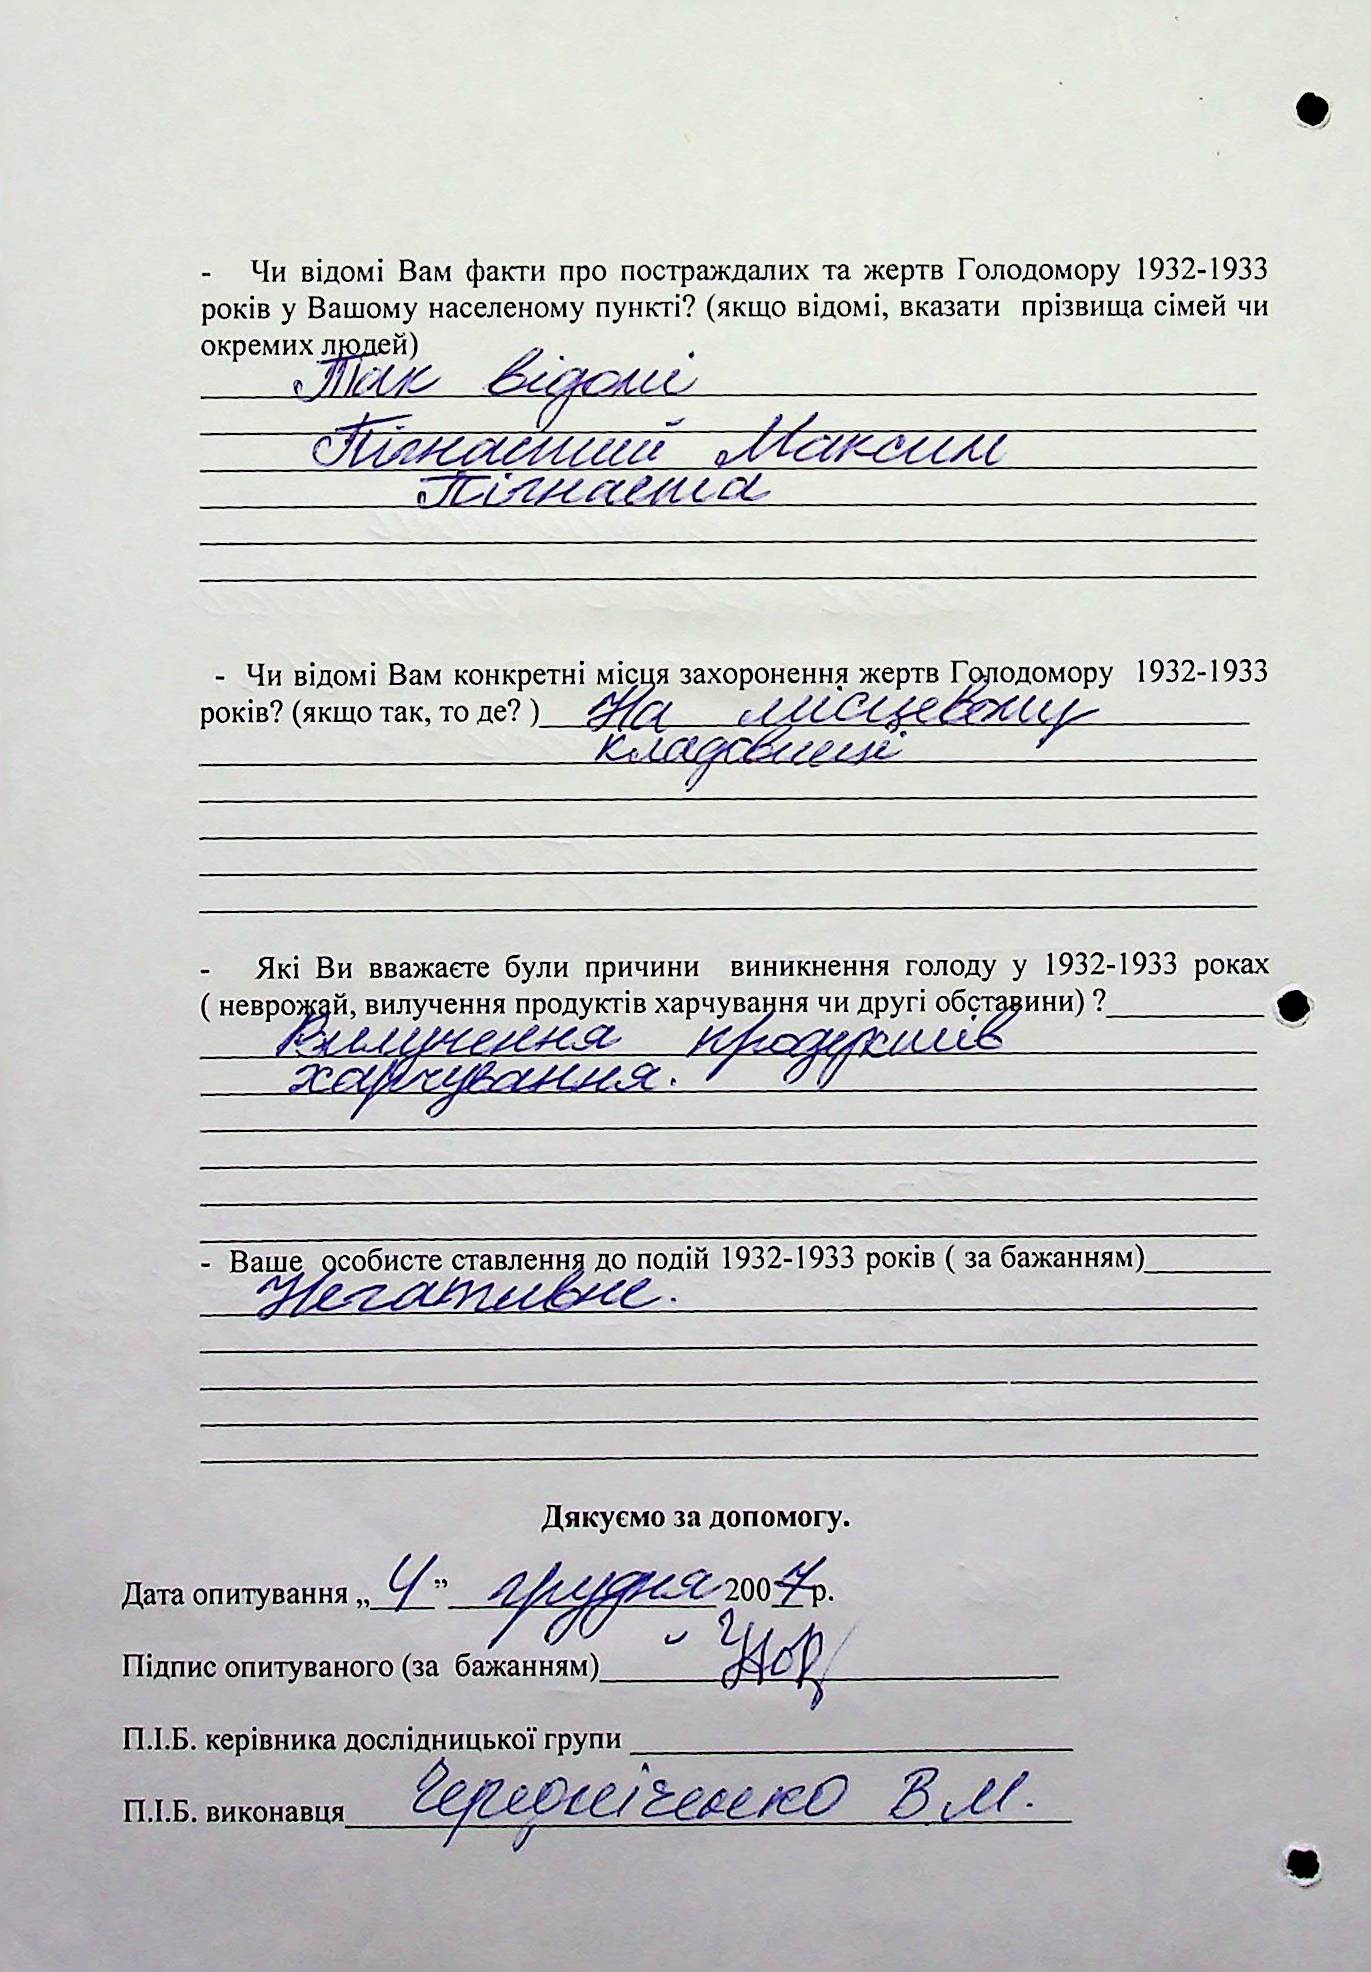 - Чи відомі Вам факти про постраждалих та жертв Голодомору 1932-1933
років у Вашому населеному пункті? (якщо відомі, вказати прізвища сімей чи
окремих людей)
Так відомі
Пігнастий Максим
Пігнаста
- Чи відомі Вам конкретні місця захоронення жертв Голодомору 1932-1933
років? (якщо так, то де? ) На місцевому
кладовищі
- Які Ви вважаєте були причини виникнення голоду у 1932-1933 роках
( неврожай, вилучення продуктів харчування чи другі обставини) ?
Вилучення продуктів
харчування.
- Ваше особисте ставлення до подій 1932-1933 років ( за бажанням)
Негативне.
Дякуємо за допомогу.
Дата опитування „ 4 ” грудня 2007р.
Підпис опитуваного (за бажанням)
П.І.Б. керівника дослідницької групи
П.І.Б. виконавця Чередніченко В.М.